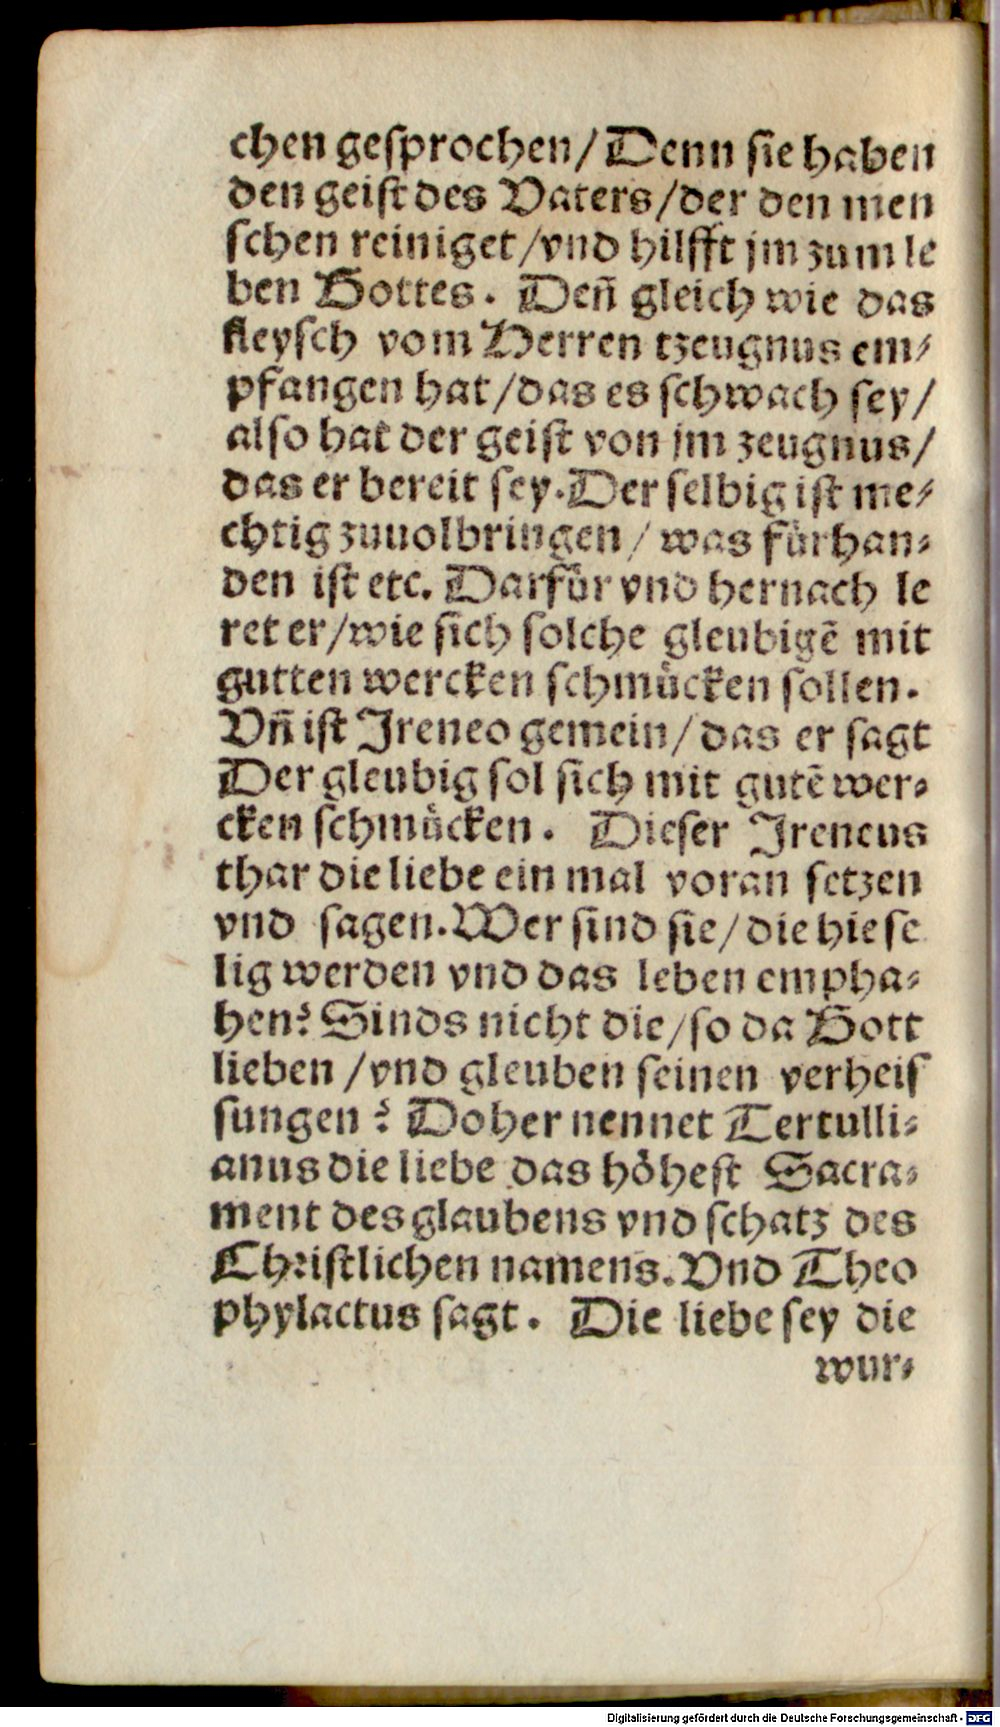 chen gesprochen/ Denn sie haben
den geist des Vaters/der den men
schen reiniget/vnd hilfft jm zum le
ben Gottes. Deñ gleich wie das
fleysch vom Herren tzeugnus em⸗
pfangen hat/das es schwach sey/
also hat der geist von jm zeugnus/
das er bereit sey. Der selbig ist me⸗
chtig zuuolbringen/ was fuͤrhan⸗
den ist etc. Darfuͤr vnd hernach le
ret er/wie sich solche gleubigẽ mit
gutten wercken schmuͤcken sollen.
Vñ ist Ireneo gemein/das er sagt
Der gleubig sol sich mit gutẽ wer⸗
cken schmuͤcken. Dieser Ireneus
thar die liebe ein mal voran setzen
vnd sagen. Wer sind sie/ die hie se
lig werden vnd das leben empha⸗
hen? Sinds nicht die/so da Gott
lieben/vnd gleuben seinen verheis
sungen? Doher nennet Tertulli⸗
anus die liebe das hoͤhest Sacra⸗
ment des glaubens vnd schatz des
Christlichen namens. Vnd Theo
phylactus sagt. Die liebe sey die
wur⸗
Digitalisierung gefördert durch die Deutsche Forschungsgemeinschaft - DFG